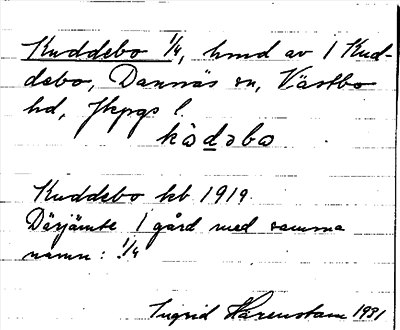 Kuddebo 1/4, hmd av 1 Kud-
debo, Dannäs sn, Västbo
hd, Jkpgs l.
kòdəbo
Kuddebo kb 1919
Därjämte 1 gård med samma
namn: 1/4
Ingrid Härenstam 1931